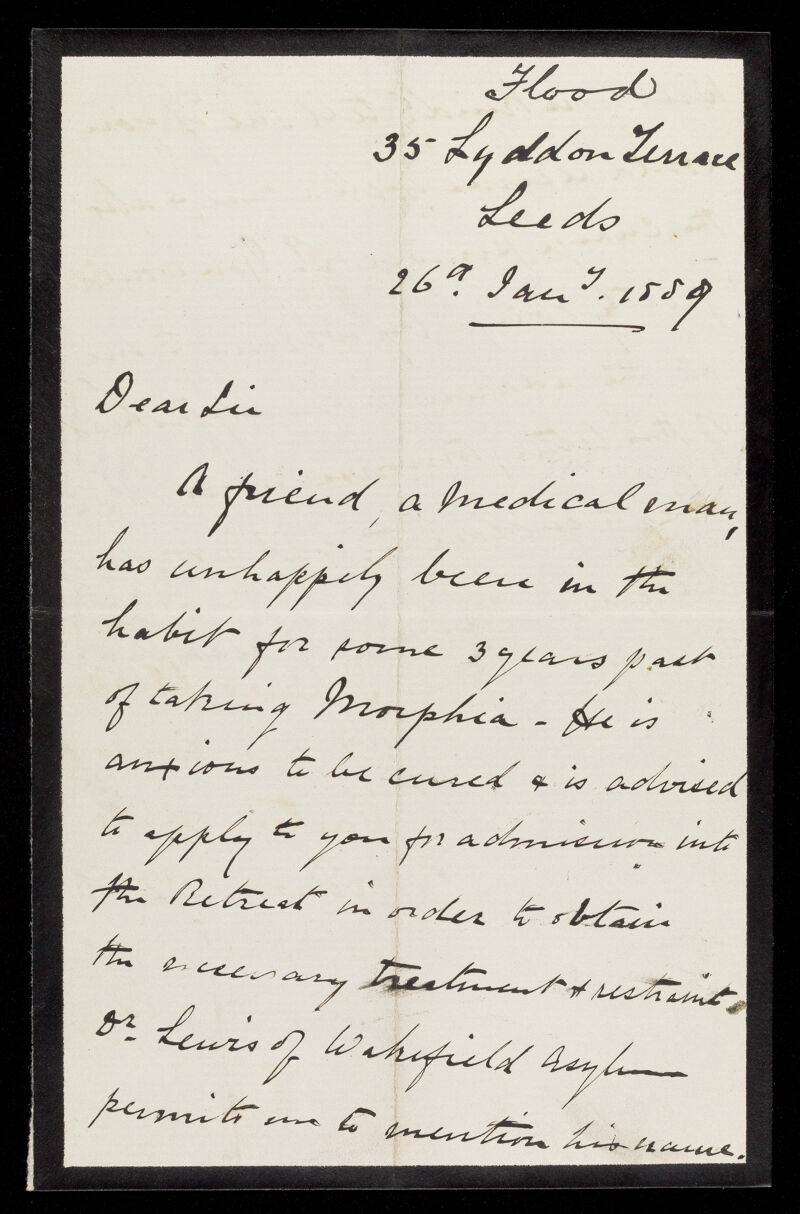 Flood
35 Lyddon Terrace
Leeds
26th. Jany. 1889
Dear Sir
A friend, a medical man,
has unhappily been in the
habit for some 3 years past
of taking Morphia - He is
anxious to be cured & is advised
to apply to you for admission into
the Retreat in order to obtain
the necessary treatment & restraint.
Dr. Lewis of Wakefield Asylum
permits me to mention his name.